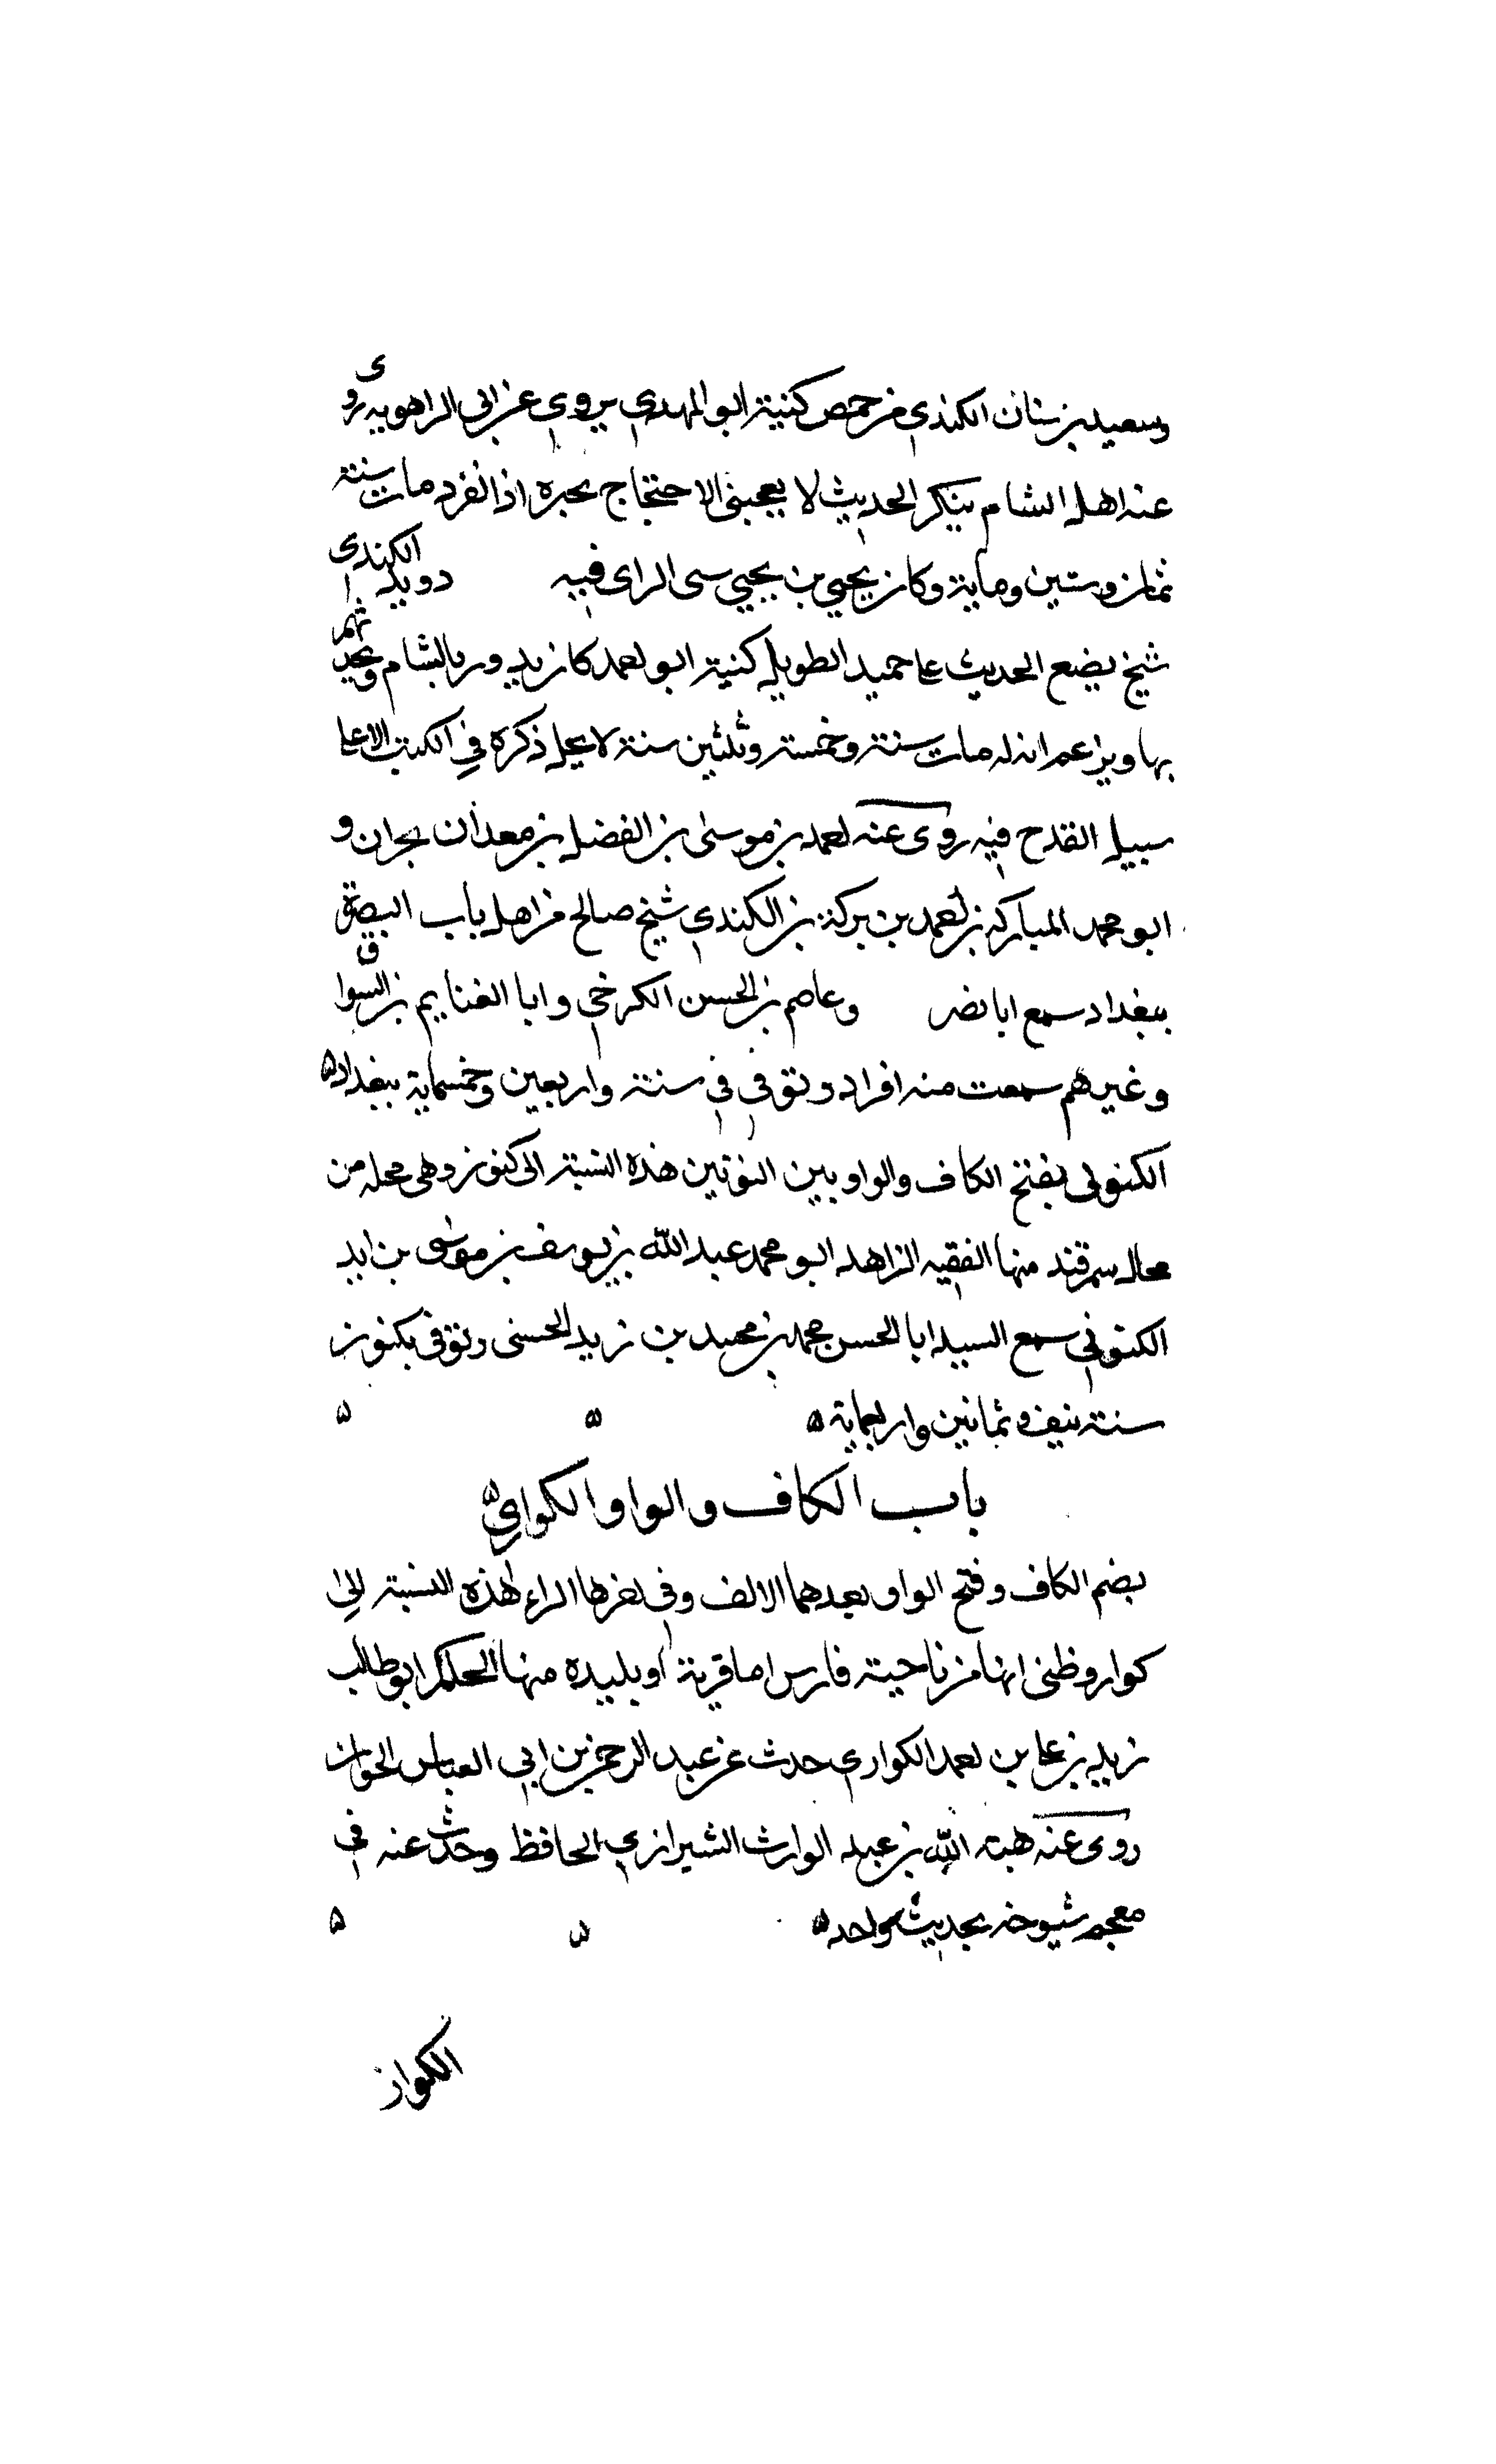 وسعيد بن سنان الكندى من حمص كنيته ابو المهدى يروى عن ابى الزاهويه روى
عنه اهل الشام ينكر الحديث لا يعجبنى الاحتجاج بخبره اذا انفرد مات سنة
ثمان وستين وماية وكان يحيى بن يحيى سى الراى فيه دويد الكندى
شيخ يضع الحديث على حميد الطويل كنيته ابو احمد كان يدور بالشام ويحدثهم
بها ويزعم ان له مات سنة وخمسة وثلثين سنة لا يحل ذكره فى الكتب الا على
سبيل القدح فيه روى عنه احمد بن موسى بن الفضل بن معدان بحران و
ابو محمد المبارك بن احمد بن بركة بن الكندى شيخ صالح من اهل باب البصرة
ببغداد سمع ابا نصر وعاصم بن الحسن الكرخى وابا الغنايم بن السواق
وغيرهم سمعت منه افراد وتوفى فى سنة واربعين وخمسماية ببغداد
الكنونى بفتح الكاف والواو بين النونين هذه النسبة الى كنون وهى محله من
محال سمرقند منها الفقيه الزاهد ابو محمد عبد الله بن يوسف بن موسى بن
الكنونى سمع السيد ابا الحسن محمد بن محمد بن زيد الحسنى وتوفى بكنون
سنة نيف وثمانين واربعماية
باب الكاف والواو الكوارى
بضم الكاف وفتح الواو بعدهما الالف وفى اخرها الراء هذه النسبة الى
كوار وظنى انها من ناحية فارس اما قرية او بليده منها الحاكم ابو طالب
زيد بن على بن احمد الكوارى حدث عن عبد الرحمن بن ابى العباس
روى عنه هبة الله بن عبد الوارث الشيرازى الحافظ وحدث عنه فى
معجم شيوخه بحديث واحد
الكواز